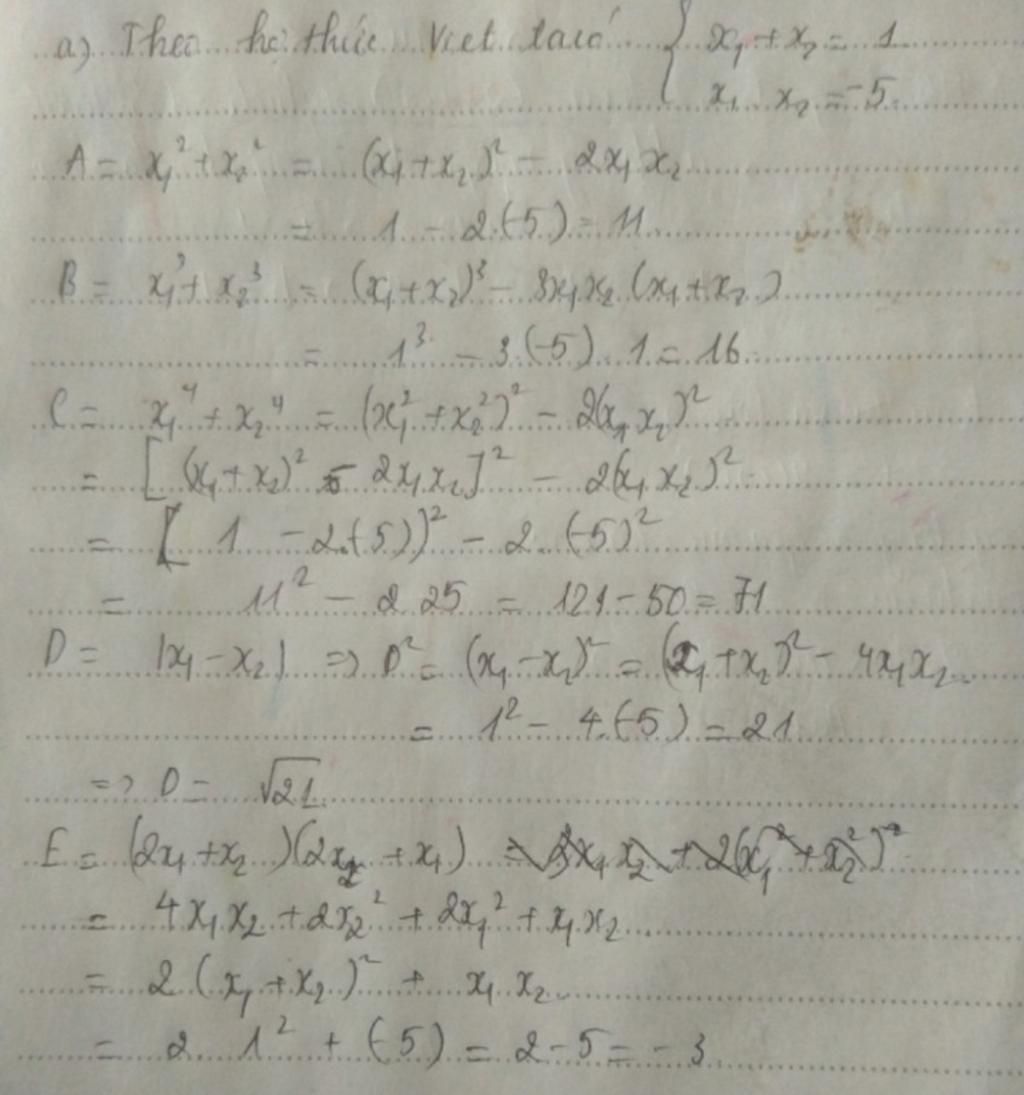 a) Theo hệ thức Viet ta có { x₁ + x₂ = 1
x₁ x₂ = -5
A = x₁² + x₂² = (x₁ + x₂)² - 2x₁x₂
= 1 - 2.(-5) = 11
B = x₁³ + x₂³ = (x₁ + x₂)³ - 3x₁x₂(x₁ + x₂)
= 1³ - 3.(-5).1 = 16
C = x₁⁴ + x₂⁴ = (x₁² + x₂²)² - 2(x₁x₂)²
= [(x₁ + x₂)² - 2x₁x₂]² - 2(x₁x₂)²
= [1 - 2.(-5))² - 2.(-5)²
= 11² - 2 25 = 121 - 50 = 71
D = |x₁ - x₂| => D² = (x₁ - x₂)² = (x₁ + x₂)² - 4x₁x₂
= 1² - 4.(-5) = 21
=> D = √21
E = (2x₁ + x₂)(2x₂ + x₁)
= 4x₁x₂ + 2x₂² + 2x₁² + x₁x₂
= 2(x₁ + x₂)² + x₁x₂
= 2 1² + (-5) = 2 - 5 = -3